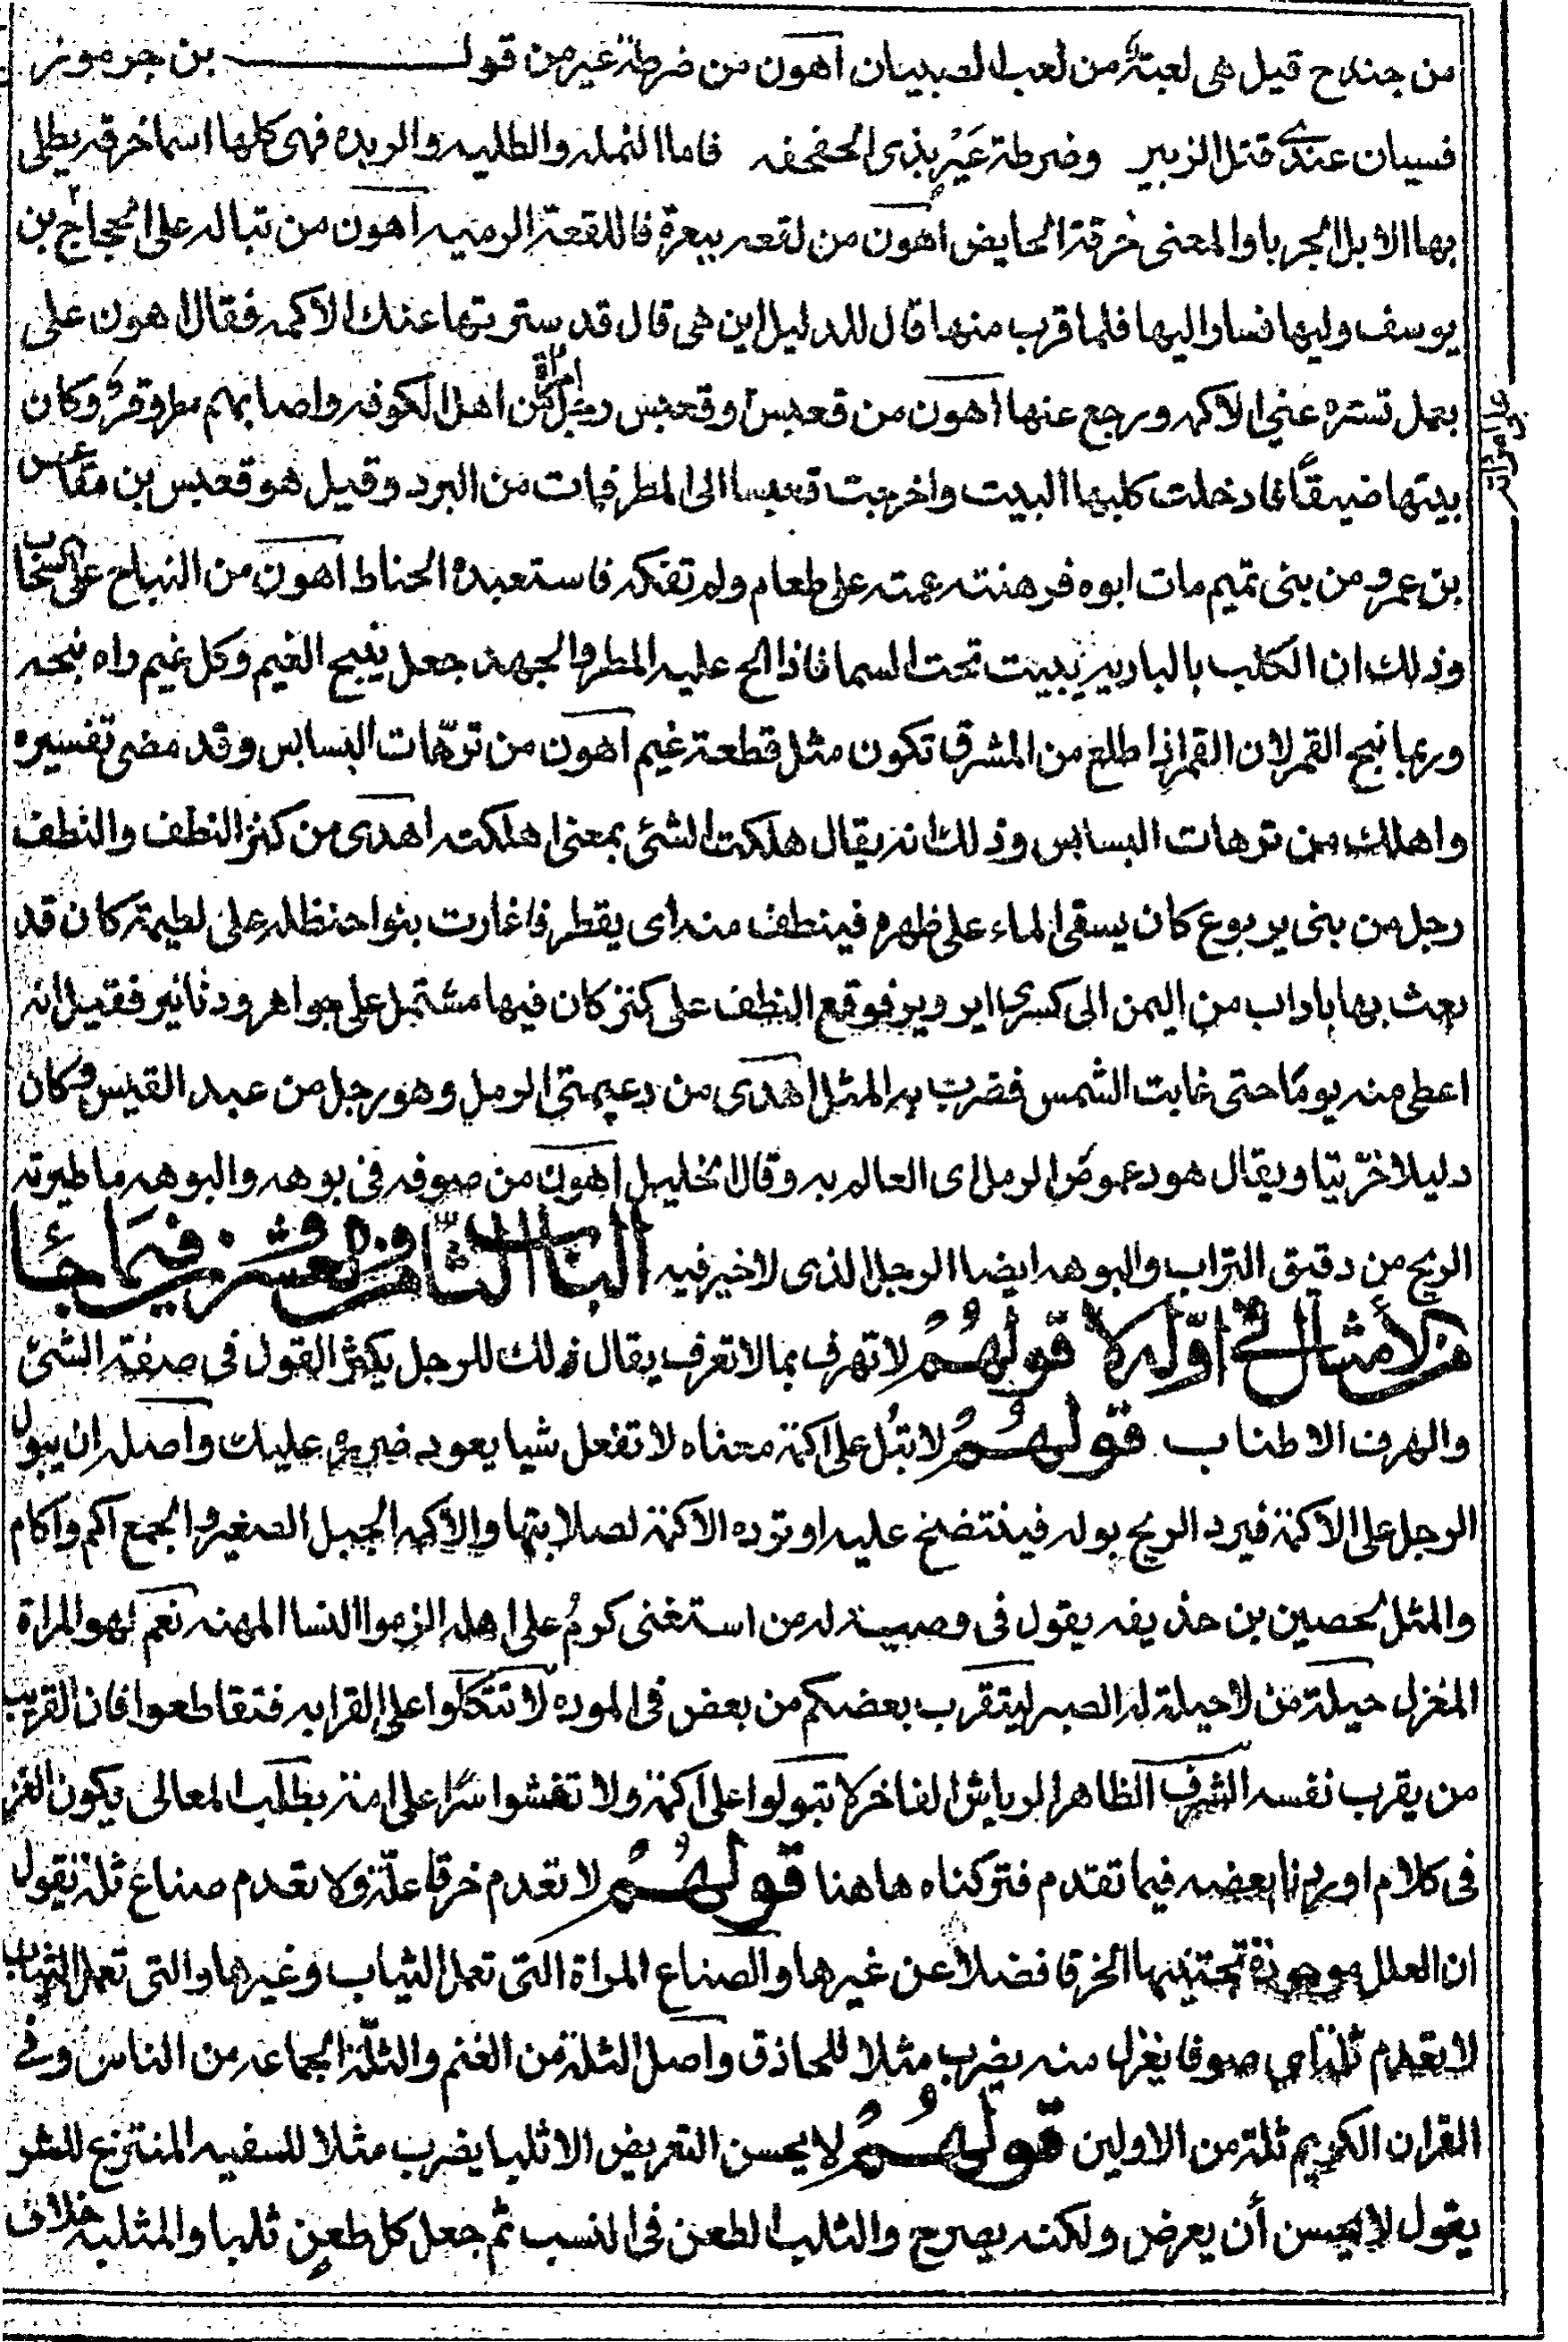 من جندح قيل هى لعبة من لعب الصبيان اهون من ضرطة عير من قول بن جرموز
فسيان عندى قتل الزبير وضرطة عَيْر بذى الجحفه فاما النمله والطليه والربده فهى كلها اسما خرقه يطلى
بها الابل الجربا والمعنى خرقة الحايض اهون من لقعه ببعرة فاللقعة الرميه اهون من تباله على الحجاج بن
يوسف وليها فساوا اليها فلما قرب منها قال للدليل اين هى قال قد سترتها عنك الاكمه فقال اهون على
بعمل تستره عنى الاكمه ورجع عنها اهون من قعيس وقعيس رجل من اهل الكوفه واصابهم مطر وقر وكان
بيتها ضيقًا فادخلت كلبها البيت واخرجت قعيسا الى المطر فمات من البرد وقيل هو قعيس بن مقاعس
بن عمرو من بنى تميم مات ابوه فرهنته عمته على طعام ولم تفكه فاستعبده الحناط اهون من النباح على السحاب
وذلك ان الكلب بالباديه يبيت تحت السما فاذا الح عليه المطر والجهد جعل ينبح الغيم وكل غيم راه نبحه
وربما نبح القمر لان القمر اذا طلع من المشرق تكون مثل قطعة غيم اهون من ترّهات البسابس وقد مضى تفسيره
واهلك من ترهات البسابس وذلك انه يقال هلكت الشئ بمعنى اهلكته اهدى من كنز النطف والنطف
رجل من بنى يربوع كان يسقى الماء على ظهره فينطف منه اى يقطر فاغارت بنوا حنظله على لطيمة كان قد
بعث بها باداب من اليمن الى كسرى ابرويز فوقع النطف على كنز كان فيها مشتمل على جواهر ودنانير فقيل انه
اعطى منه يومًا حتى غابت الشمس فضرب به المثل اهدى من دعيميص الرمل وهو رجل من عبد القيس وكان
دليلا خرّيتا ويقال هو دعموص الرمل اى العالم به وقال الخليل اهون من صوفه فى بوهه والبوهه ما طيرته
الريح من دقيق التراب والبوهه ايضا الرجل الذى لا خير فيه الباب الثامن والعشرون فيما جاء
من الامثال الخ اوّله لا قولهم لا تهرف بما لا تعرف يقال ذلك للرجل يكثر القول فى صفة الشئ
والهرف الاطناب قولهم لا تبُل على اكمة معناه لا تفعل شيا يعود ضرره عليك واصله ان يبول
الرجل على الاكمة فيرد الريح بوله فينتضخ عليه او ترده الاكمة لصلابتها والاكمه الجبل الصغير والجمع اكم واكام
والمثل لحصين بن حذيفه يقول فى وصية له من استغنى كرم على اهله الزموا النسا المهنه نعم لهو المراة
المغزل حيلة من لا حيلة له الصبر ليتقرب بعضكم من بعض فى الموده لا تتكلوا على القرابه فتقاطعوا فان القريب
من يقرب نفسه الشرف الظاهر الرياش الفاخر لا تبولوا على اكمة ولا تفشوا سرًا على امة بطلب المعالى يكون العز
فى كلام اوردنا بعضه فيما تقدم فتركناه هاهنا قولهم لا تعدم خرقا علّة ولا تعدم صناع ثلة نقول
ان العلل موجودة تجتنيها الخرقا فضلا عن غيرها والصناع المراة التى تعمل الثياب وغيرها والتى تعمل الثياب
لا تعدم ثلة اى صوفا يغزل منه يضرب مثلا للحاذق واصل الثلة من الغنم والثلّة الجماعه من الناس وفى
القران الكريم ثلة من الاولين قولهم لا يحسن التعريض الا ثلبا يضرب مثلا للسفيه المنتزع للشر
يقول لا يحسن أن يعرض ولكنه يصرح والثلب الطعن فى النسب ثم جعل كل طعن ثلبا والمثلبه خلاف